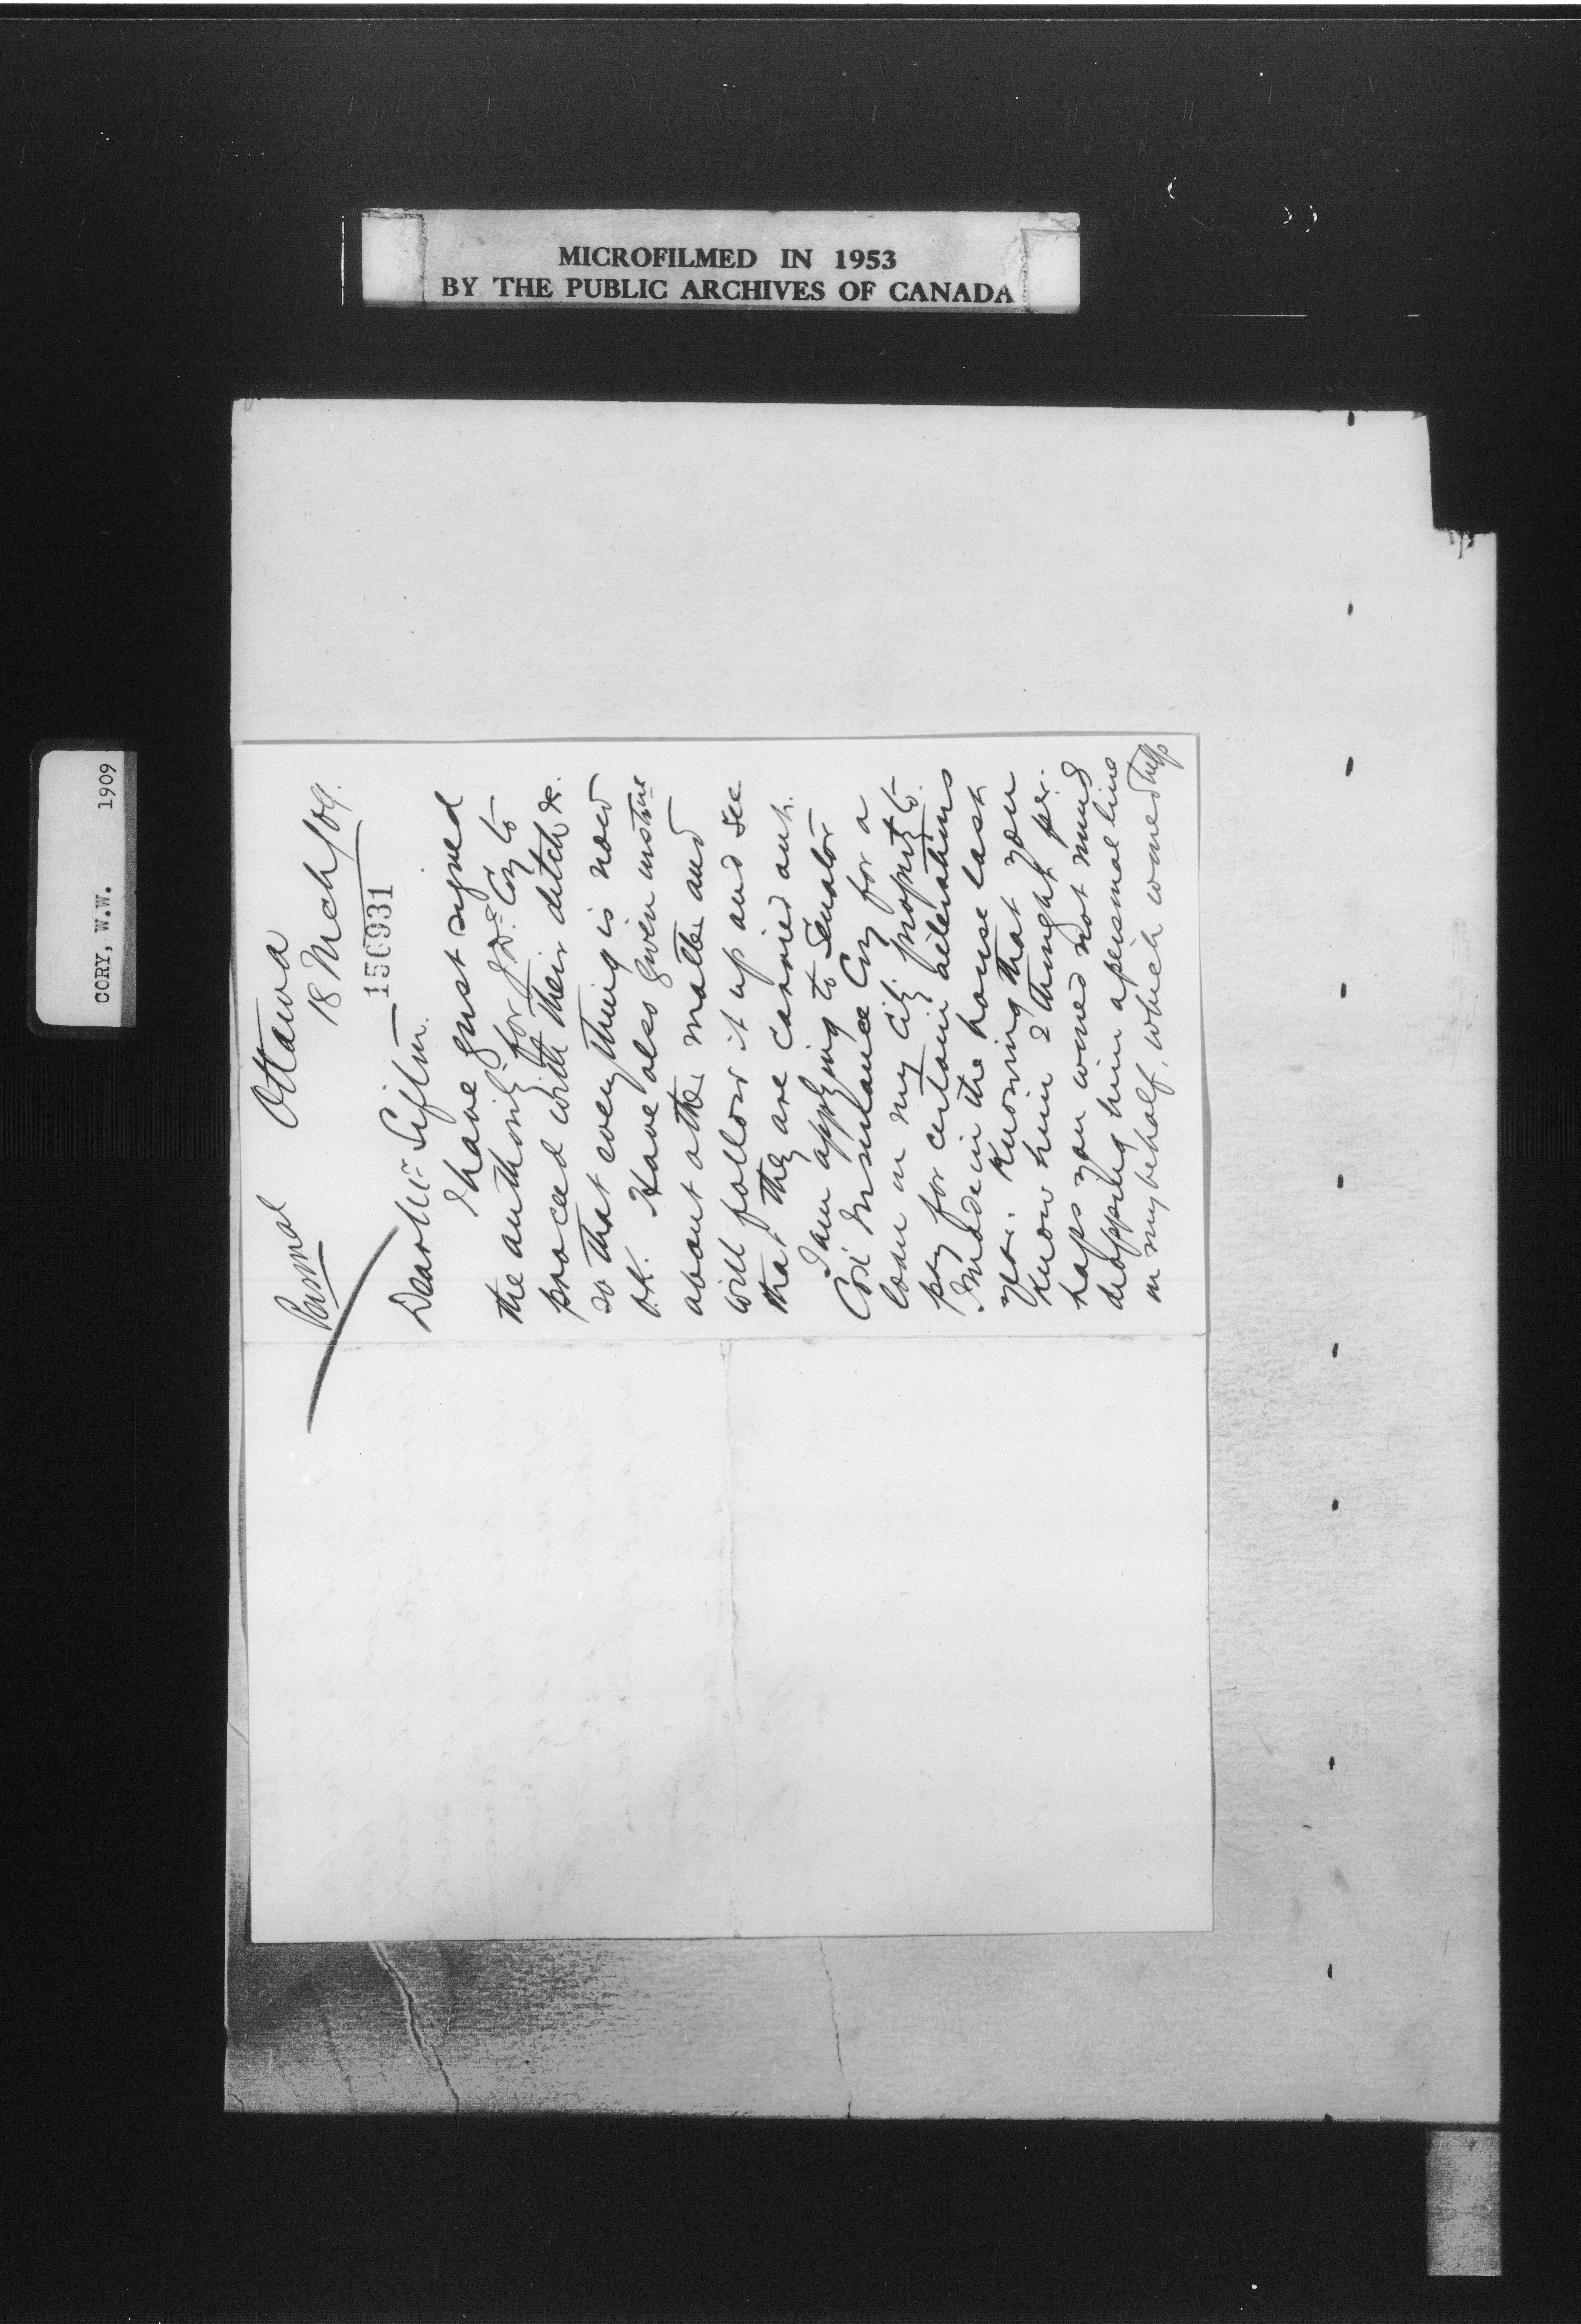 MICROFILMED IN 1953
BY THE PUBLIC ARCHIVES OF CANADA
CORY, W.W. 1909
Personal
Ottawa
18 Mch/09.
150931
Dear Mr Sifton.
I have just signed
the authority for Coy to
proceed with their ditch &c.
so that everything is now
O.K. Have also given
about other matter and
will follow it up and see
that they are carried out.
I am applying to Senator
Cox Insurance Coy for a
loan on my city property to
pay for certain alterations
I made in the house last
year. Knowing that you
know him I thought per-
haps you would not mind
dropping him a personal line
in my behalf, which would help